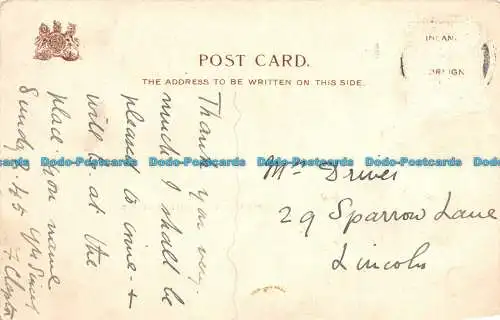 POST CARD.
THE ADDRESS TO BE WRITTEN ON THIS SIDE.
INLAND
FOREIGN
Thank you very
much I shall be
pleased to come &
will be at the
place you name
Sunday 2.45
Mr Driver
29 Sparrow Lane
Lincoln
Dodo-Postcards Dodo-Postcards Dodo-Postcards Dodo-Postcards Dodo-Postcards